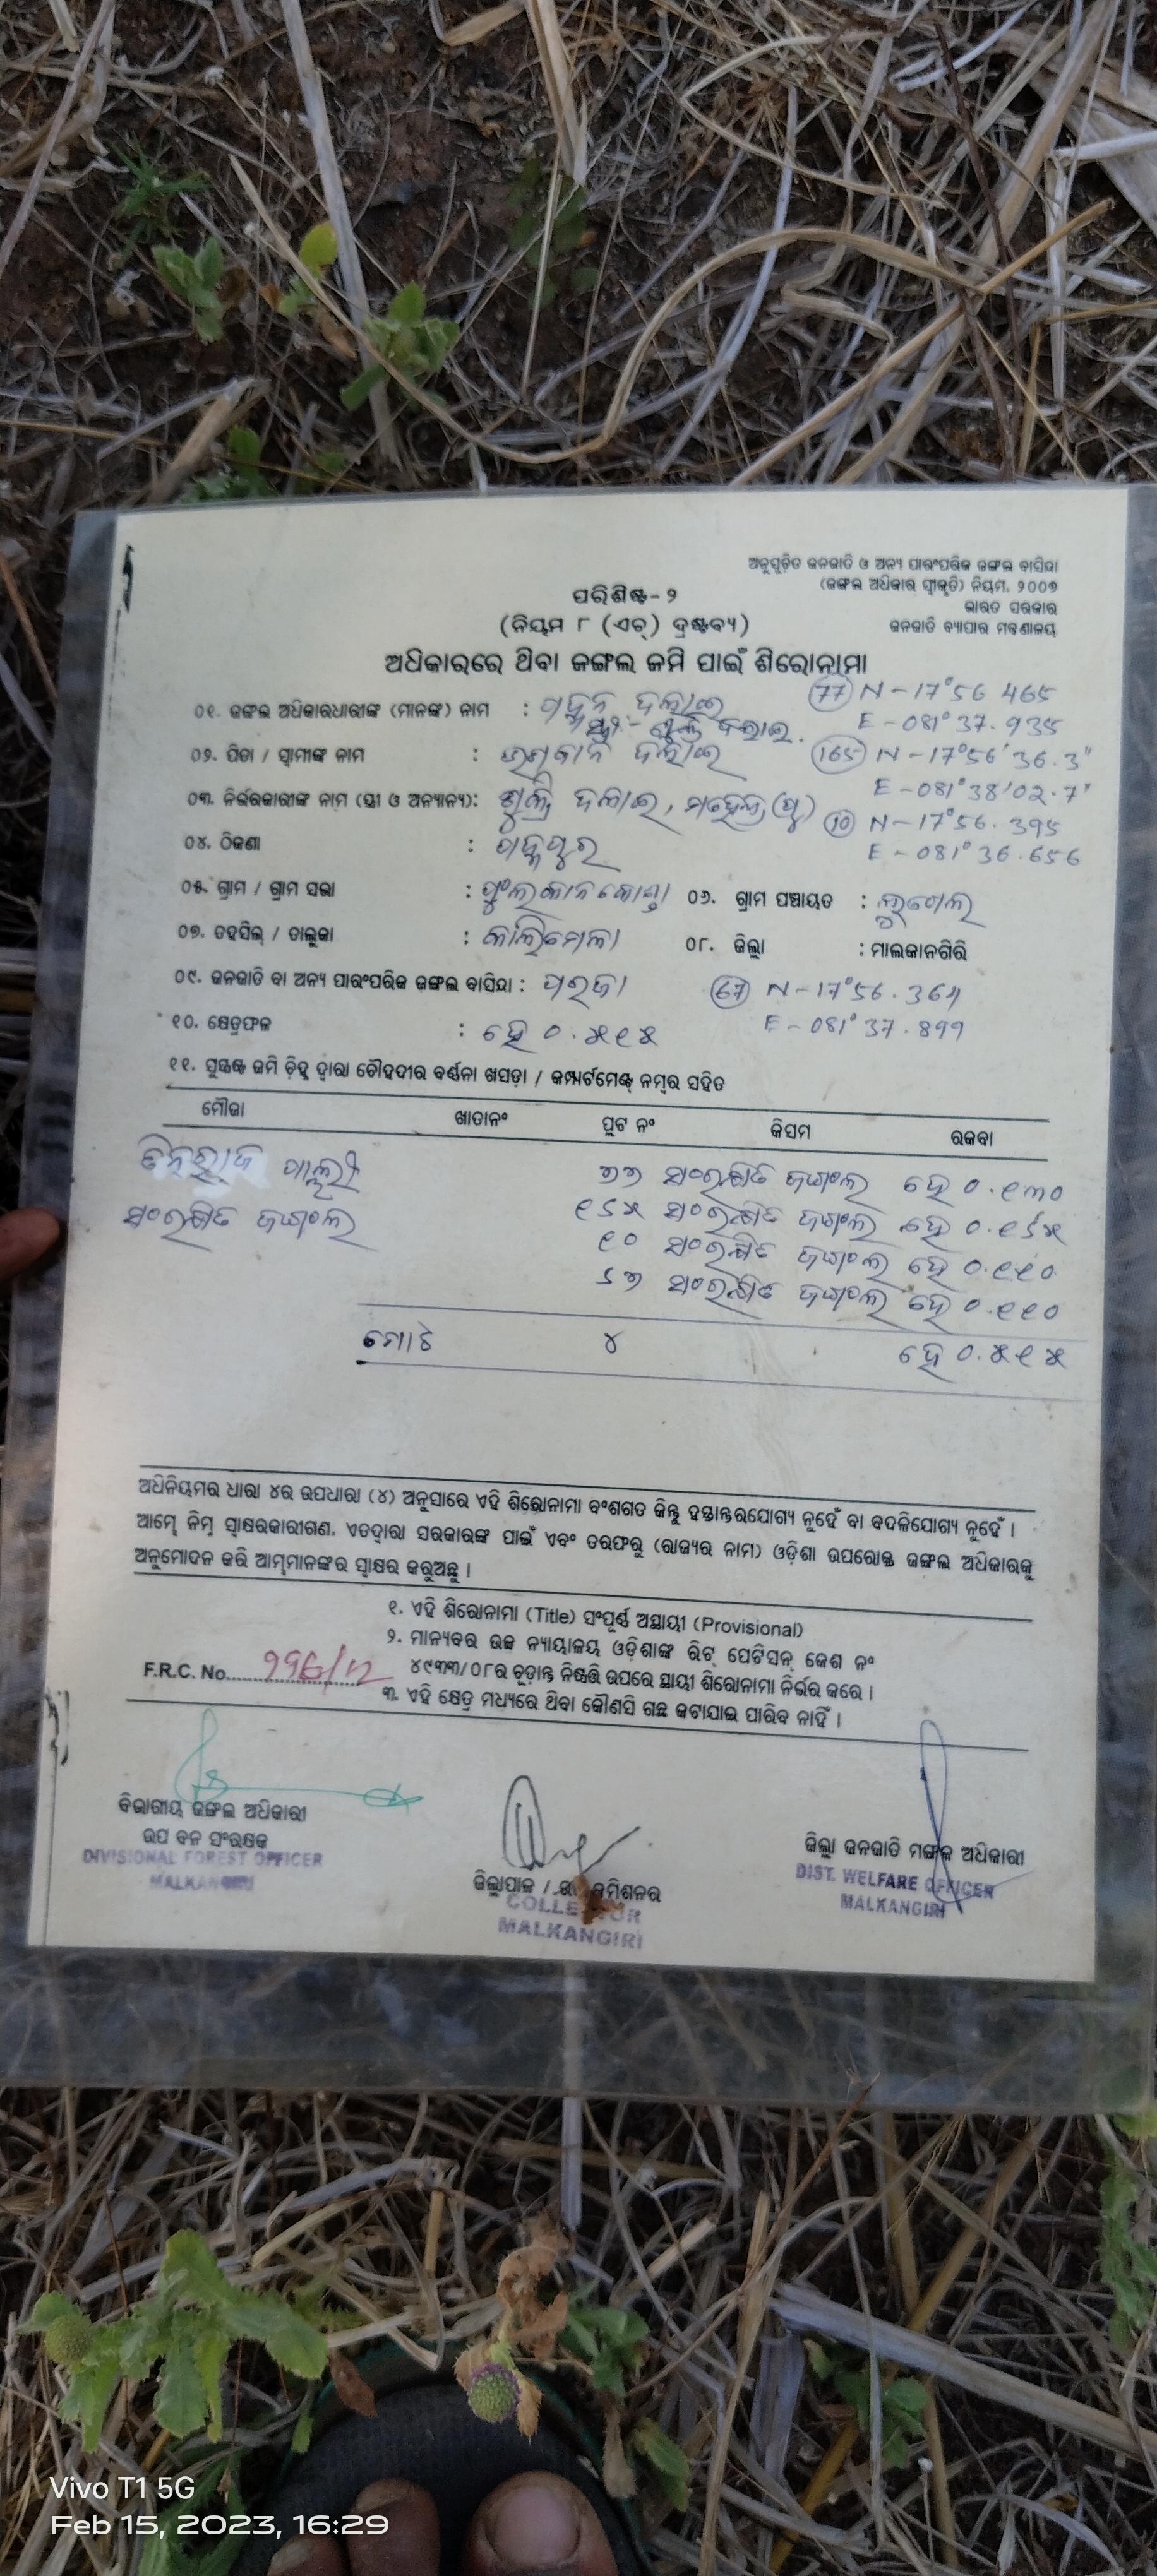 ଅନୁସୂଚିତ ଜନଜାତି ଓ ଅନ୍ୟ ପାରଂପରିକ ଜଙ୍ଗଲ ବାସିନ୍ଦା
(ଜଙ୍ଗଲ ଅଧିକାର ସ୍ୱୀକୃତି) ନିୟମ, ୨୦୦୭
ଭାରତ ସରକାର
ଜନଜାତି ବ୍ୟାପାର ମନ୍ତ୍ରଣାଳୟ
ପରିଶିଷ୍ଟ-୨
(ନିୟମ ୮ (ଏଚ୍) ଦ୍ରଷ୍ଟବ୍ୟ)
ଅଧିକାରରେ ଥିବା ଜଙ୍ଗଲ ଜମି ପାଇଁ ଶିରୋନାମା
୦୧. ଜଙ୍ଗଲ ଅଧିକାରଧାରୀଙ୍କ (ମାନଙ୍କ) ନାମ : ଦଳାଇ 77 N-17°56 465
ସ୍ତ୍ରୀ - ଶୁକ୍ରି ଦଳାଇ. E-081°37.935
୦୨. ପିତା / ସ୍ୱାମୀଙ୍କ ନାମ : ଭଗବାନ ଦଳାଇ 165 N-17°56'36.3"
E-081°38'02.7"
୦୩. ନିର୍ଭରକାରୀଙ୍କ ନାମ (ସ୍ତ୍ରୀ ଓ ଅନ୍ୟାନ୍ୟ): ଶୁକ୍ରି ଦଳାଇ, ମହେନ୍ଦ୍ର (ପୁ) 10 N-17°56.395
୦୪. ଠିକଣା : E-081°36.656
୦୫. ଗ୍ରାମ / ଗ୍ରାମ ସଭା : ୦୬. ଗ୍ରାମ ପଞ୍ଚାୟତ :
୦୭. ତହସିଲ୍ / ତାଲୁକା : କାଲିମେଳା ୦୮. ଜିଲ୍ଲା : ମାଲକାନଗିରି
୦୯. ଜନଜାତି ବା ଅନ୍ୟ ପାରଂପରିକ ଜଙ୍ଗଲ ବାସିନ୍ଦା : ପରଜା 67 N-17°56.364
୧୦. କ୍ଷେତ୍ରଫଳ : ହେ ୦.୫୧୫ E-081°37.899
୧୧. ସୁସ୍ପଷ୍ଟ ଜମି ଚିହ୍ନ ଦ୍ୱାରା ଚୌହଦୀର ବର୍ଣ୍ଣନା ଖସଡ଼ା / କମ୍ପାର୍ଟମେଣ୍ଟ୍ ନମ୍ବର ସହିତ
ମୌଜା ଖାତାନଂ ପ୍ଲଟ ନଂ କିସମ ରକବା
୭୭ ସଂରକ୍ଷିତ ଜଙ୍ଗଲ ହେ ୦.୧୩୦
ସଂରକ୍ଷିତ ଜଙ୍ଗଲ ୧୬୫ ସଂରକ୍ଷିତ ଜଙ୍ଗଲ ହେ ୦.୧୬୫
୧୦ ସଂରକ୍ଷିତ ଜଙ୍ଗଲ ହେ ୦.୧୧୦
୬୭ ସଂରକ୍ଷିତ ଜଙ୍ଗଲ ହେ ୦.୧୧୦
ମୋଟ ୪ ହେ ୦.୫୧୫
ଅଧିନିୟମର ଧାରା ୪ର ଉପଧାରା (୪) ଅନୁସାରେ ଏହି ଶିରୋନାମା ବଂଶଗତ କିନ୍ତୁ ହସ୍ତାନ୍ତରଯୋଗ୍ୟ ନୁହେଁ ବା ବଦଳିଯୋଗ୍ୟ ନୁହେଁ ।
ଆମ୍ଭେ ନିମ୍ନ ସ୍ୱାକ୍ଷରକାରୀଗଣ, ଏତଦ୍ୱାରା ସରକାରଙ୍କ ପାଇଁ ଏବଂ ତରଫରୁ (ରାଜ୍ୟର ନାମ) ଓଡ଼ିଶା ଉପରୋକ୍ତ ଜଙ୍ଗଲ ଅଧିକାରକୁ
ଅନୁମୋଦନ କରି ଆମ୍ଭମାନଙ୍କର ସ୍ୱାକ୍ଷର କରୁଅଛୁ ।
୧. ଏହି ଶିରୋନାମା (Title) ସଂପୂର୍ଣ୍ଣ ଅସ୍ଥାୟୀ (Provisional)
୨. ମାନ୍ୟବର ଉଚ୍ଚ ନ୍ୟାୟାଳୟ ଓଡ଼ିଶାଙ୍କ ରିଟ୍ ପେଟିସନ୍ କେଶ ନଂ
୪୯୩୩/୦୮ର ଚୂଡ଼ାନ୍ତ ନିଷ୍ପତ୍ତି ଉପରେ ସ୍ଥାୟୀ ଶିରୋନାମା ନିର୍ଭର କରେ ।
F.R.C. No. 996/12
୩. ଏହି କ୍ଷେତ୍ର ମଧ୍ୟରେ ଥିବା କୌଣସି ଗଛ କଟାଯାଇ ପାରିବ ନାହିଁ ।
ବିଭାଗୀୟ ଜଙ୍ଗଲ ଅଧିକାରୀ
ଉପ ବନ ସଂରକ୍ଷକ
DIVISIONAL FOREST OFFICER
MALKANGIRI
ଜିଲ୍ଲାପାଳ /
COLLECTOR
MALKANGIRI
ଜିଲ୍ଲା ଜନଜାତି ମଙ୍ଗଳ ଅଧିକାରୀ
DIST. WELFARE OFFICER
MALKANGIRI
Vivo T1 5G
Feb 15, 2023, 16:29